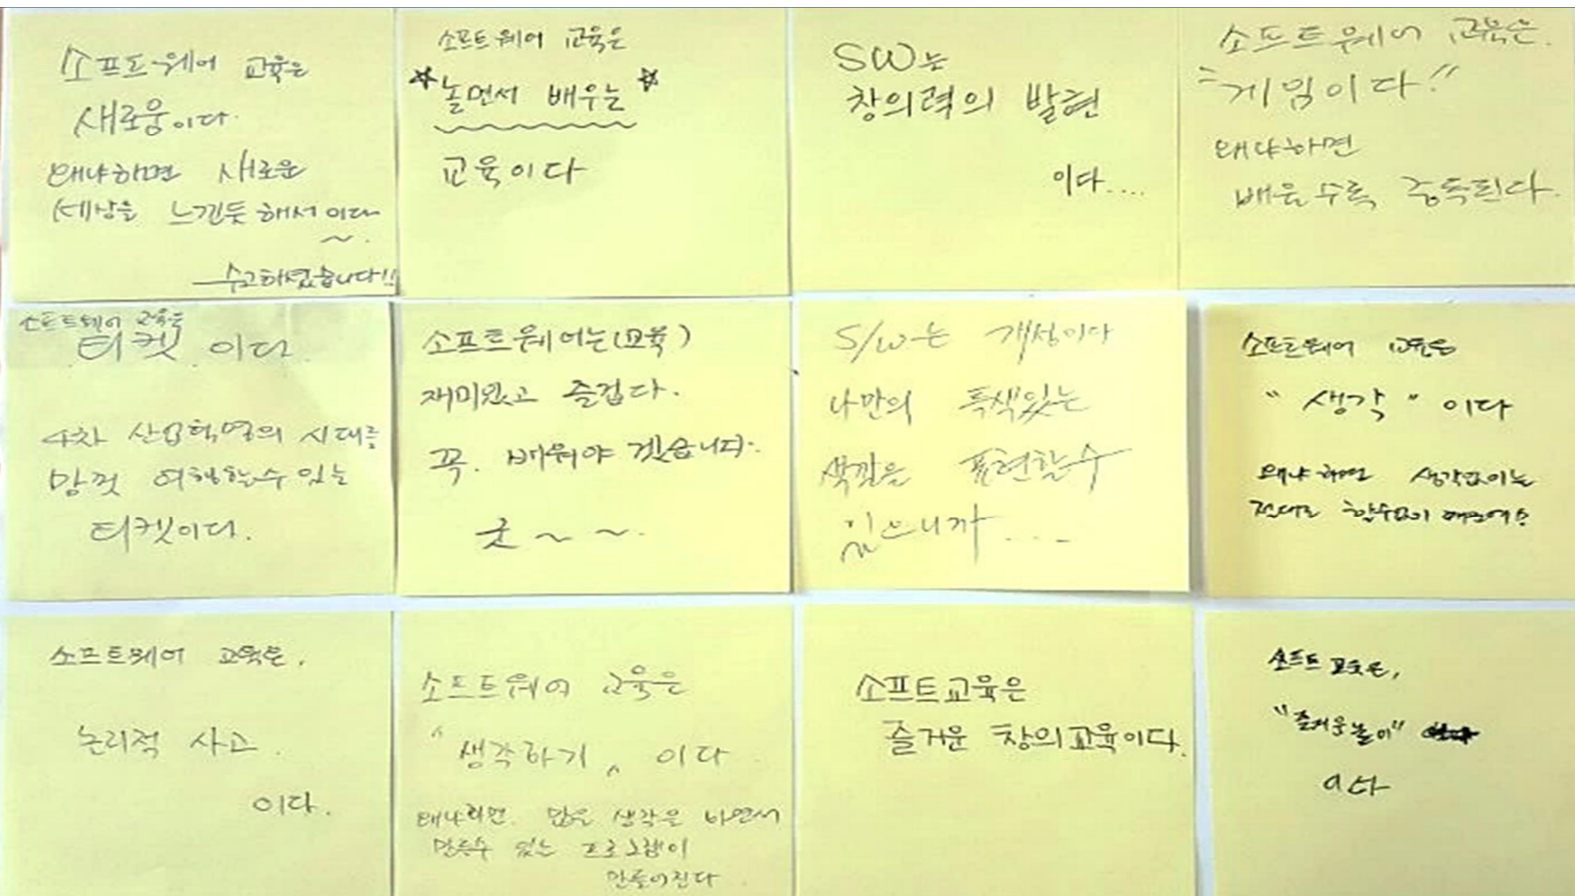 소프트웨어 교육은
새로움이다.
왜냐하면 새로운
세상을 느낀듯 해서 이다
~.
수고하셨습니다!!
소프트웨어 교육은
☆놀면서 배우는☆
교육이다
SW는
창의력의 발현
이다....
소프트웨어 교육은.
"게임이다!!"
왜냐하면
배울수록 중독된다.
소프트웨어 교육은
티켓 이다
4차 산업혁명의 시대를
맘껏 여행할수 있는
티켓이다.
소프트웨어는(교육)
재미있고 즐겁다.
꼭. 배워야 겠습니다.
굿~~.
S/W는 개성이다
나만의 특색있는
색깔을 표현할수
있으니까....
소프트웨어 교육은
"생각" 이다
왜냐하면 생각없이는
절대로 할수없기 때문에
소프트웨어 교육은.
논리적 사고.
이다.
소프트웨어 교육은
"생각하기" 이다
왜냐하면. 많은 생각을 하면서
만들수 있는 프로그램이
만들어진다
소프트교육은
즐거운 창의교육이다.
소프트 교육은,
"즐거운 놀이"
이다